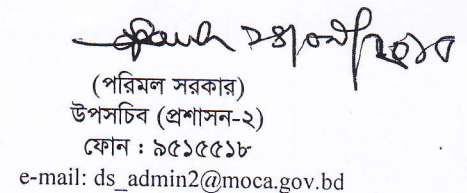 (পরিমল সরকার)
উপসচিব (প্রশাসন-২)
ফোন : ৯৫১৫৫১৮
e-mail: ds_admin2@moca.gov.bd